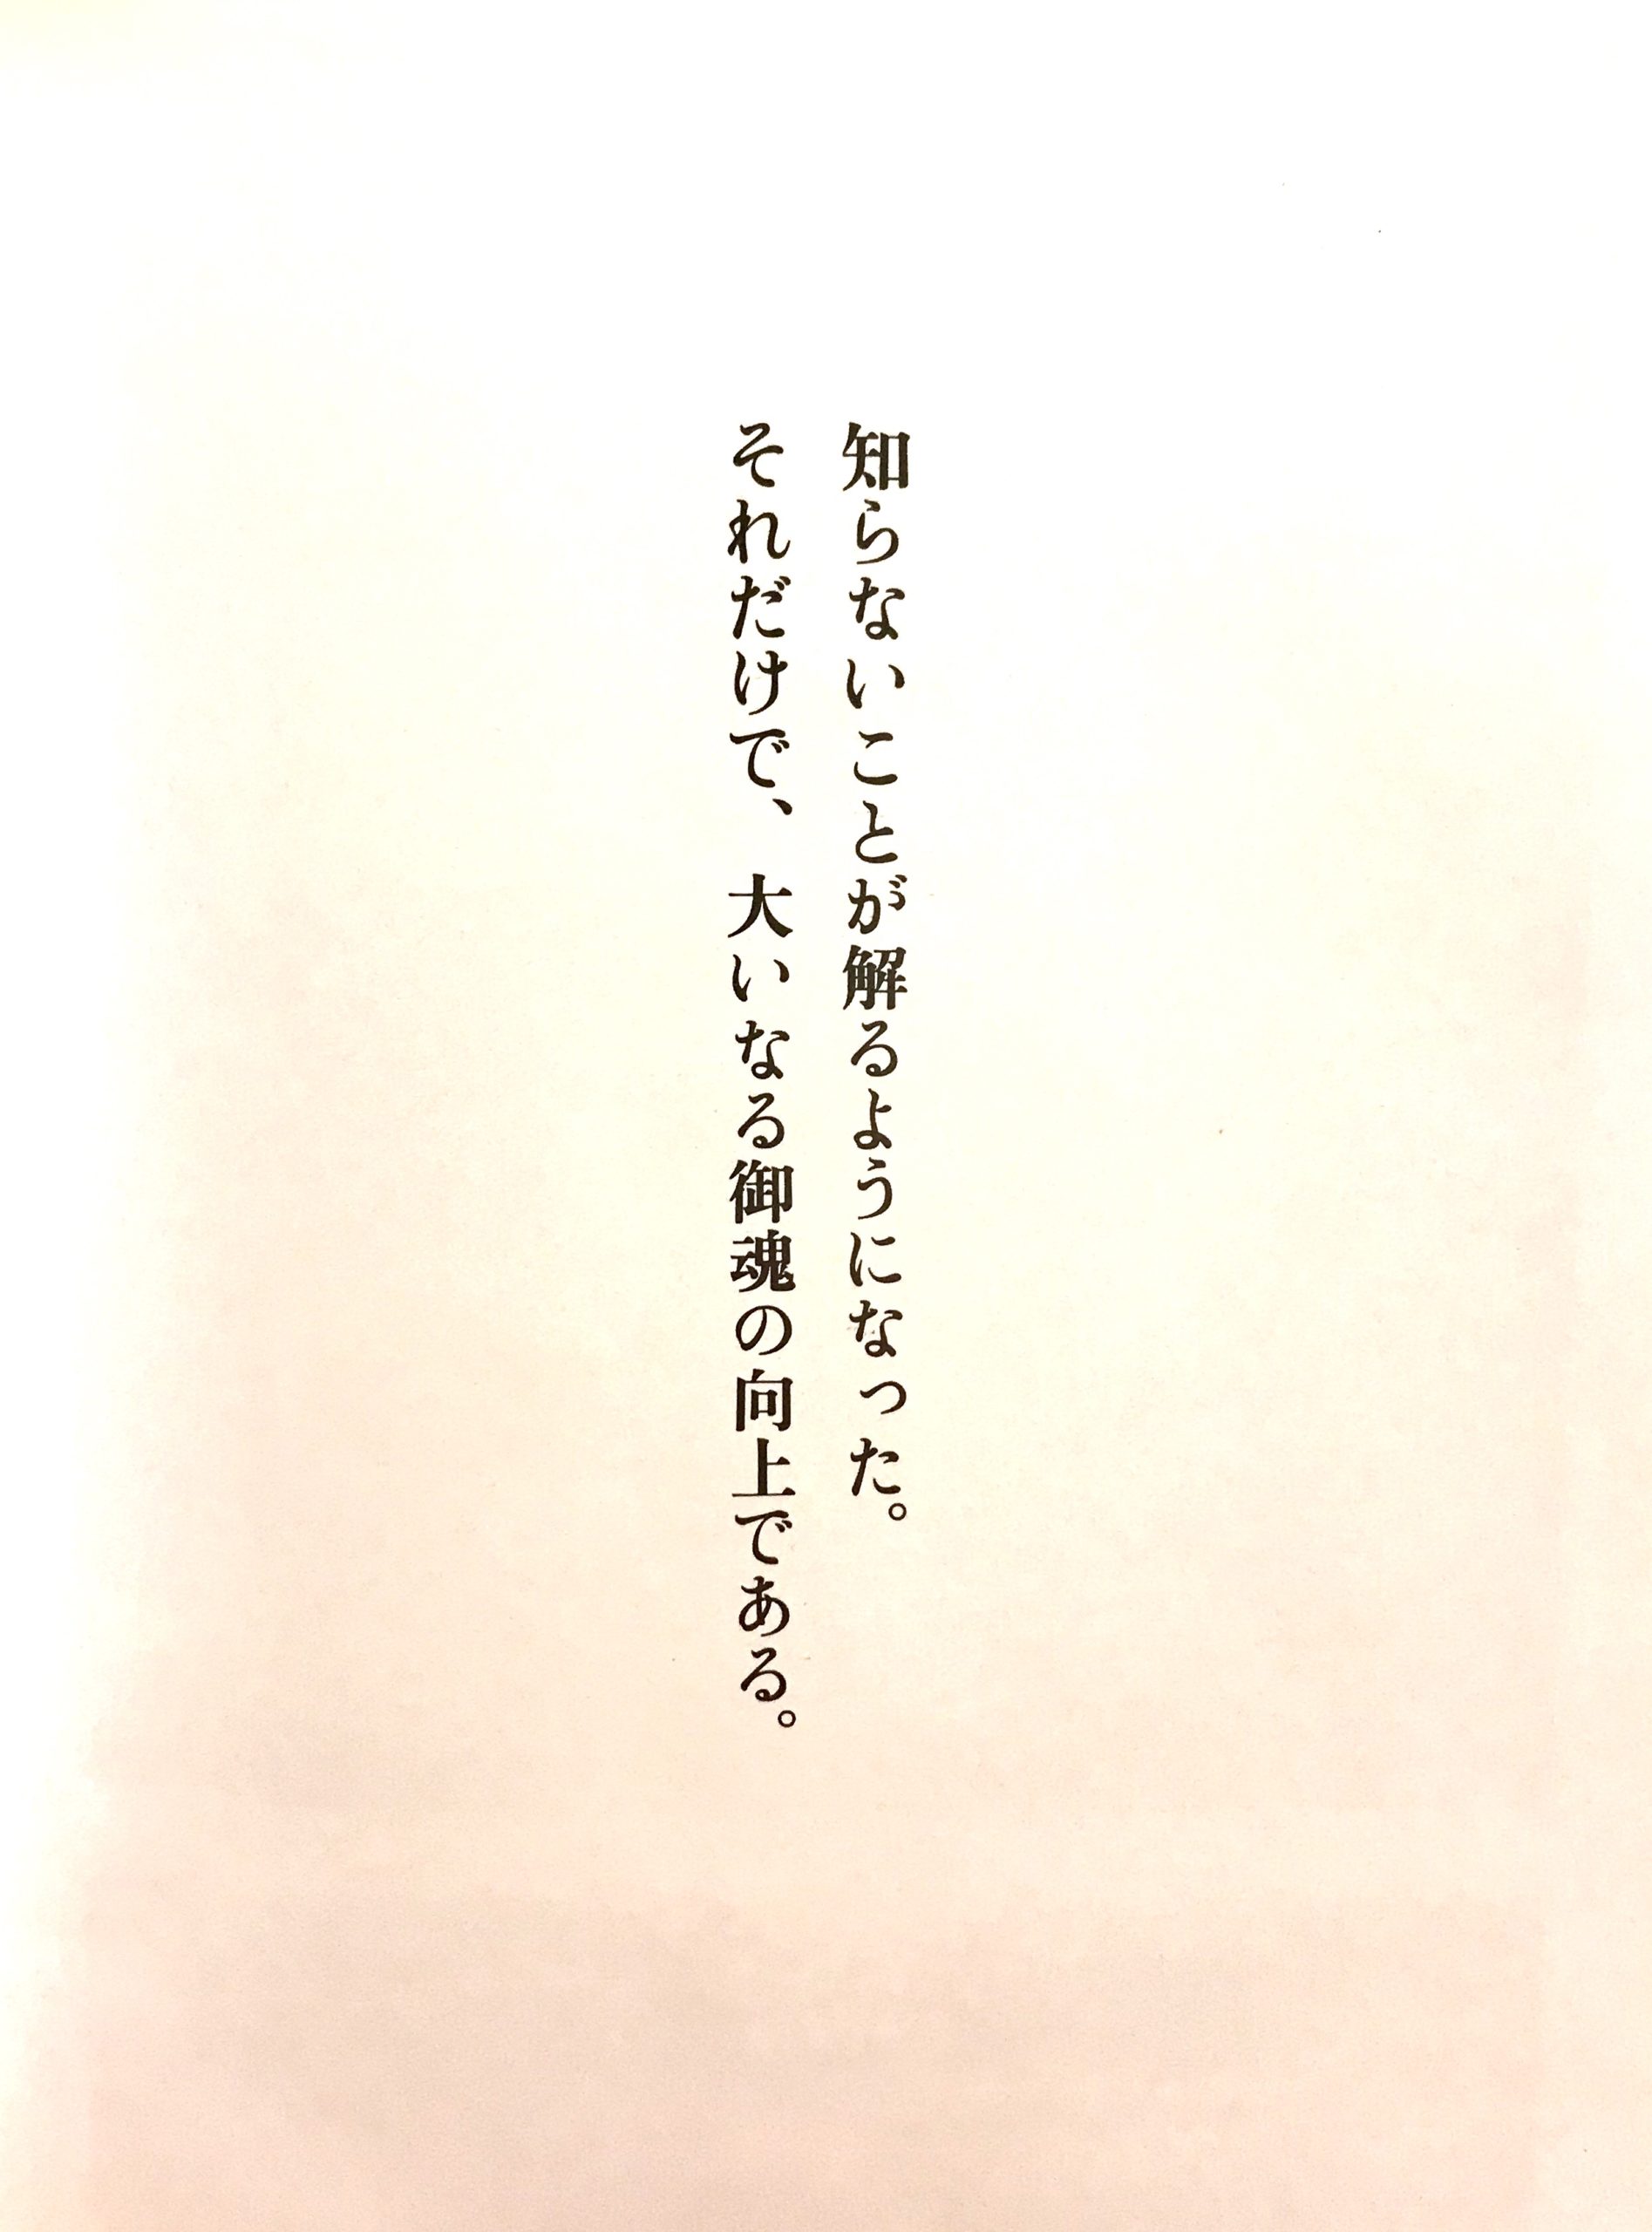 知らないことが解るようになった。
それだけで、大いなる御魂の向上である。